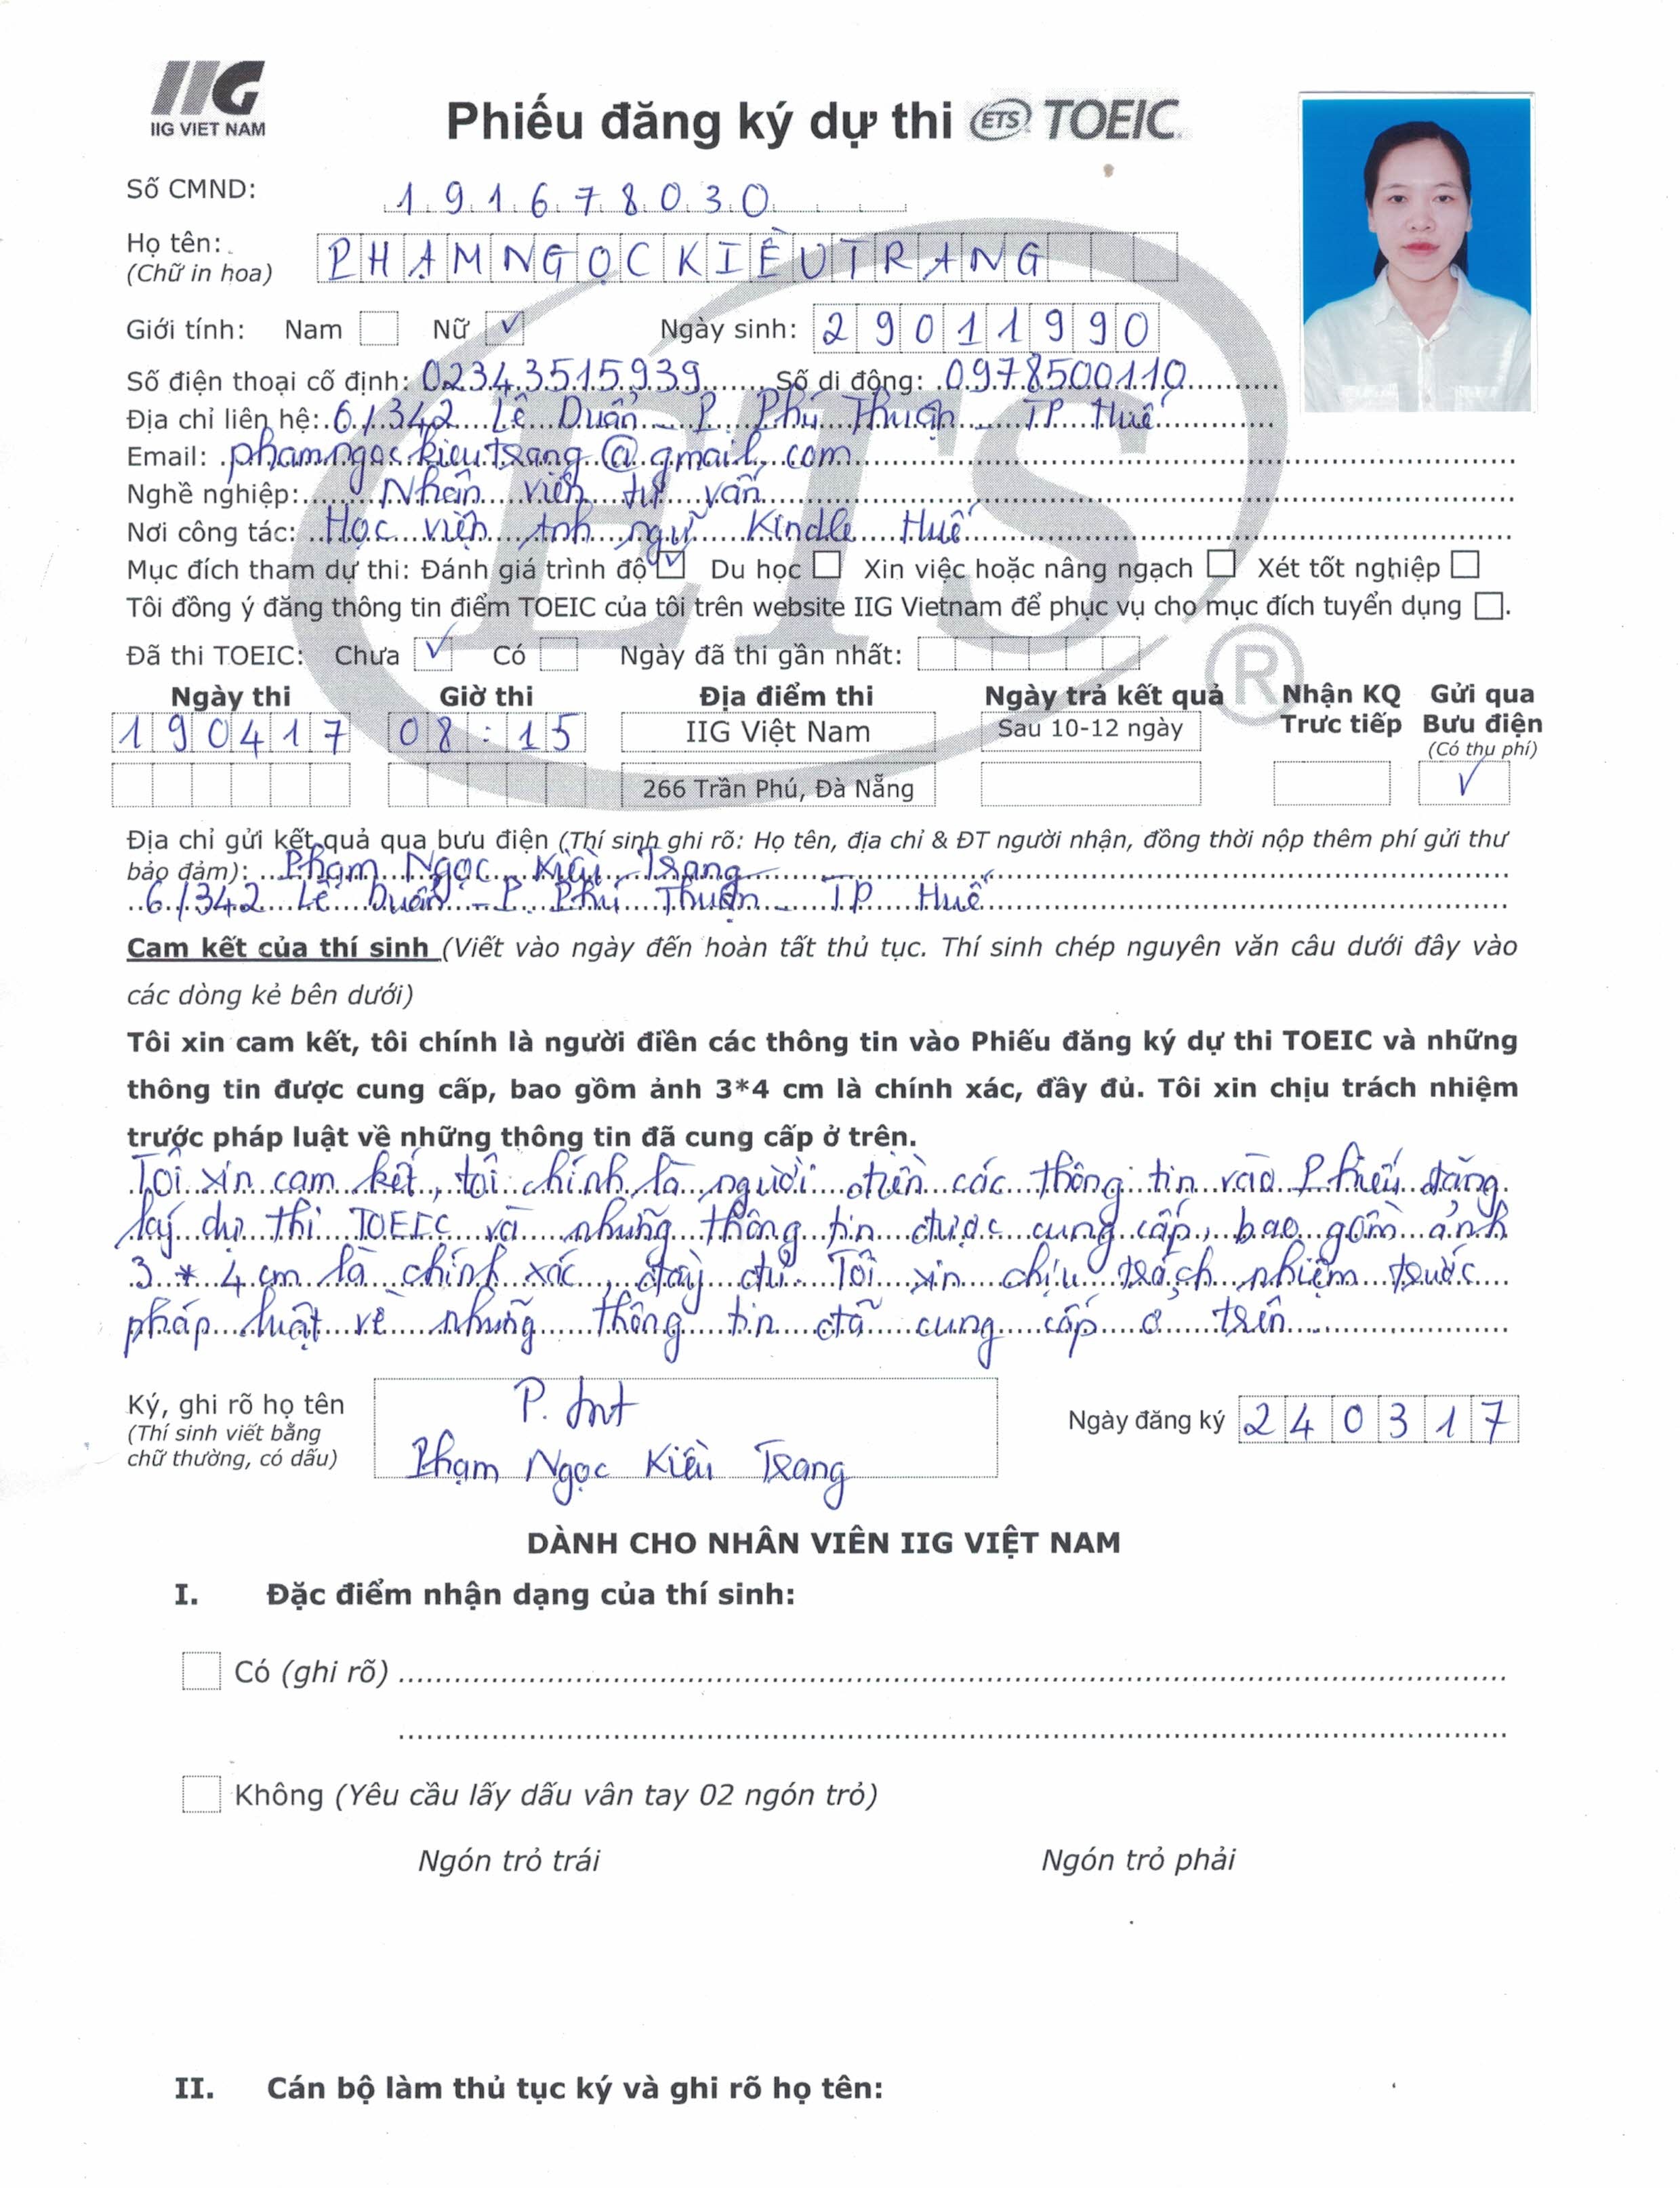 IIG
IIG VIET NAM
Phiếu đăng ký dự thi ETS TOEIC
Số CMND: 191678030
Họ tên: PHẠM NGỌC KIỀU TRANG
(Chữ in hoa)
Giới tính: Nam Nữ ✓ Ngày sinh: 29011990
Số điện thoại cố định: 02343515939 Số di động: 0978500110
Địa chỉ liên hệ: 6/342 Lê Duẩn - P. Phú Thuận - TP Huế
Email: phamngockieutrang@gmail.com
Nghề nghiệp: Nhân viên tư vấn
Nơi công tác: Học viện Anh ngữ Kindle Huế
Mục đích tham dự thi: Đánh giá trình độ ✓ Du học Xin việc hoặc nâng ngạch Xét tốt nghiệp
Tôi đồng ý đăng thông tin điểm TOEIC của tôi trên website IIG Vietnam để phục vụ cho mục đích tuyển dụng .
Đã thi TOEIC: Chưa ✓ Có Ngày đã thi gần nhất:
Ngày thi Giờ thi Địa điểm thi Ngày trả kết quả Nhận KQ Trực tiếp Gửi qua Bưu điện
(Có thu phí)
190417 08:15 IIG Việt Nam Sau 10-12 ngày
266 Trần Phú, Đà Nẵng ✓
Địa chỉ gửi kết quả qua bưu điện (Thí sinh ghi rõ: Họ tên, địa chỉ & ĐT người nhận, đồng thời nộp thêm phí gửi thư
bảo đảm): Phạm Ngọc Kiều Trang
6/342 Lê Duẩn - P. Phú Thuận - TP Huế
Cam kết của thí sinh (Viết vào ngày đến hoàn tất thủ tục. Thí sinh chép nguyên văn câu dưới đây vào
các dòng kẻ bên dưới)
Tôi xin cam kết, tôi chính là người điền các thông tin vào Phiếu đăng ký dự thi TOEIC và những
thông tin được cung cấp, bao gồm ảnh 3*4 cm là chính xác, đầy đủ. Tôi xin chịu trách nhiệm
trước pháp luật về những thông tin đã cung cấp ở trên.
Tôi xin cam kết, tôi chính là người điền các thông tin vào Phiếu đăng
ký dự thi TOEIC và những thông tin được cung cấp, bao gồm ảnh
3 * 4 cm là chính xác, đầy đủ. Tôi xin chịu trách nhiệm trước
pháp luật về những thông tin đã cung cấp ở trên
Ký, ghi rõ họ tên
(Thí sinh viết bằng
chữ thường, có dấu)
Phạm Ngọc Kiều Trang
Ngày đăng ký 240317
DÀNH CHO NHÂN VIÊN IIG VIỆT NAM
I. Đặc điểm nhận dạng của thí sinh:
Có (ghi rõ)
Không (Yêu cầu lấy dấu vân tay 02 ngón trỏ)
Ngón trỏ trái Ngón trỏ phải
II. Cán bộ làm thủ tục ký và ghi rõ họ tên:
ETS ®